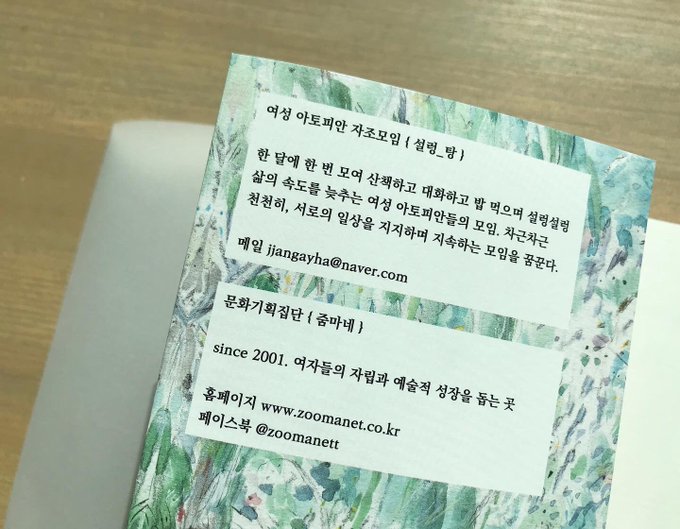 여성 아토피안 자조모임 { 설렁_탕 }
한 달에 한 번 모여 산책하고 대화하고 밥 먹으며 설렁설렁
삶의 속도를 늦추는 여성 아토피안들의 모임. 차근차근
천천히, 서로의 일상을 지지하며 지속하는 모임을 꿈꾼다.
메일 jjangayha@naver.com
문화기획집단 { 줌마네 }
since 2001. 여자들의 자립과 예술적 성장을 돕는 곳
홈페이지 www.zoomanet.co.kr
페이스북 @zoomanett